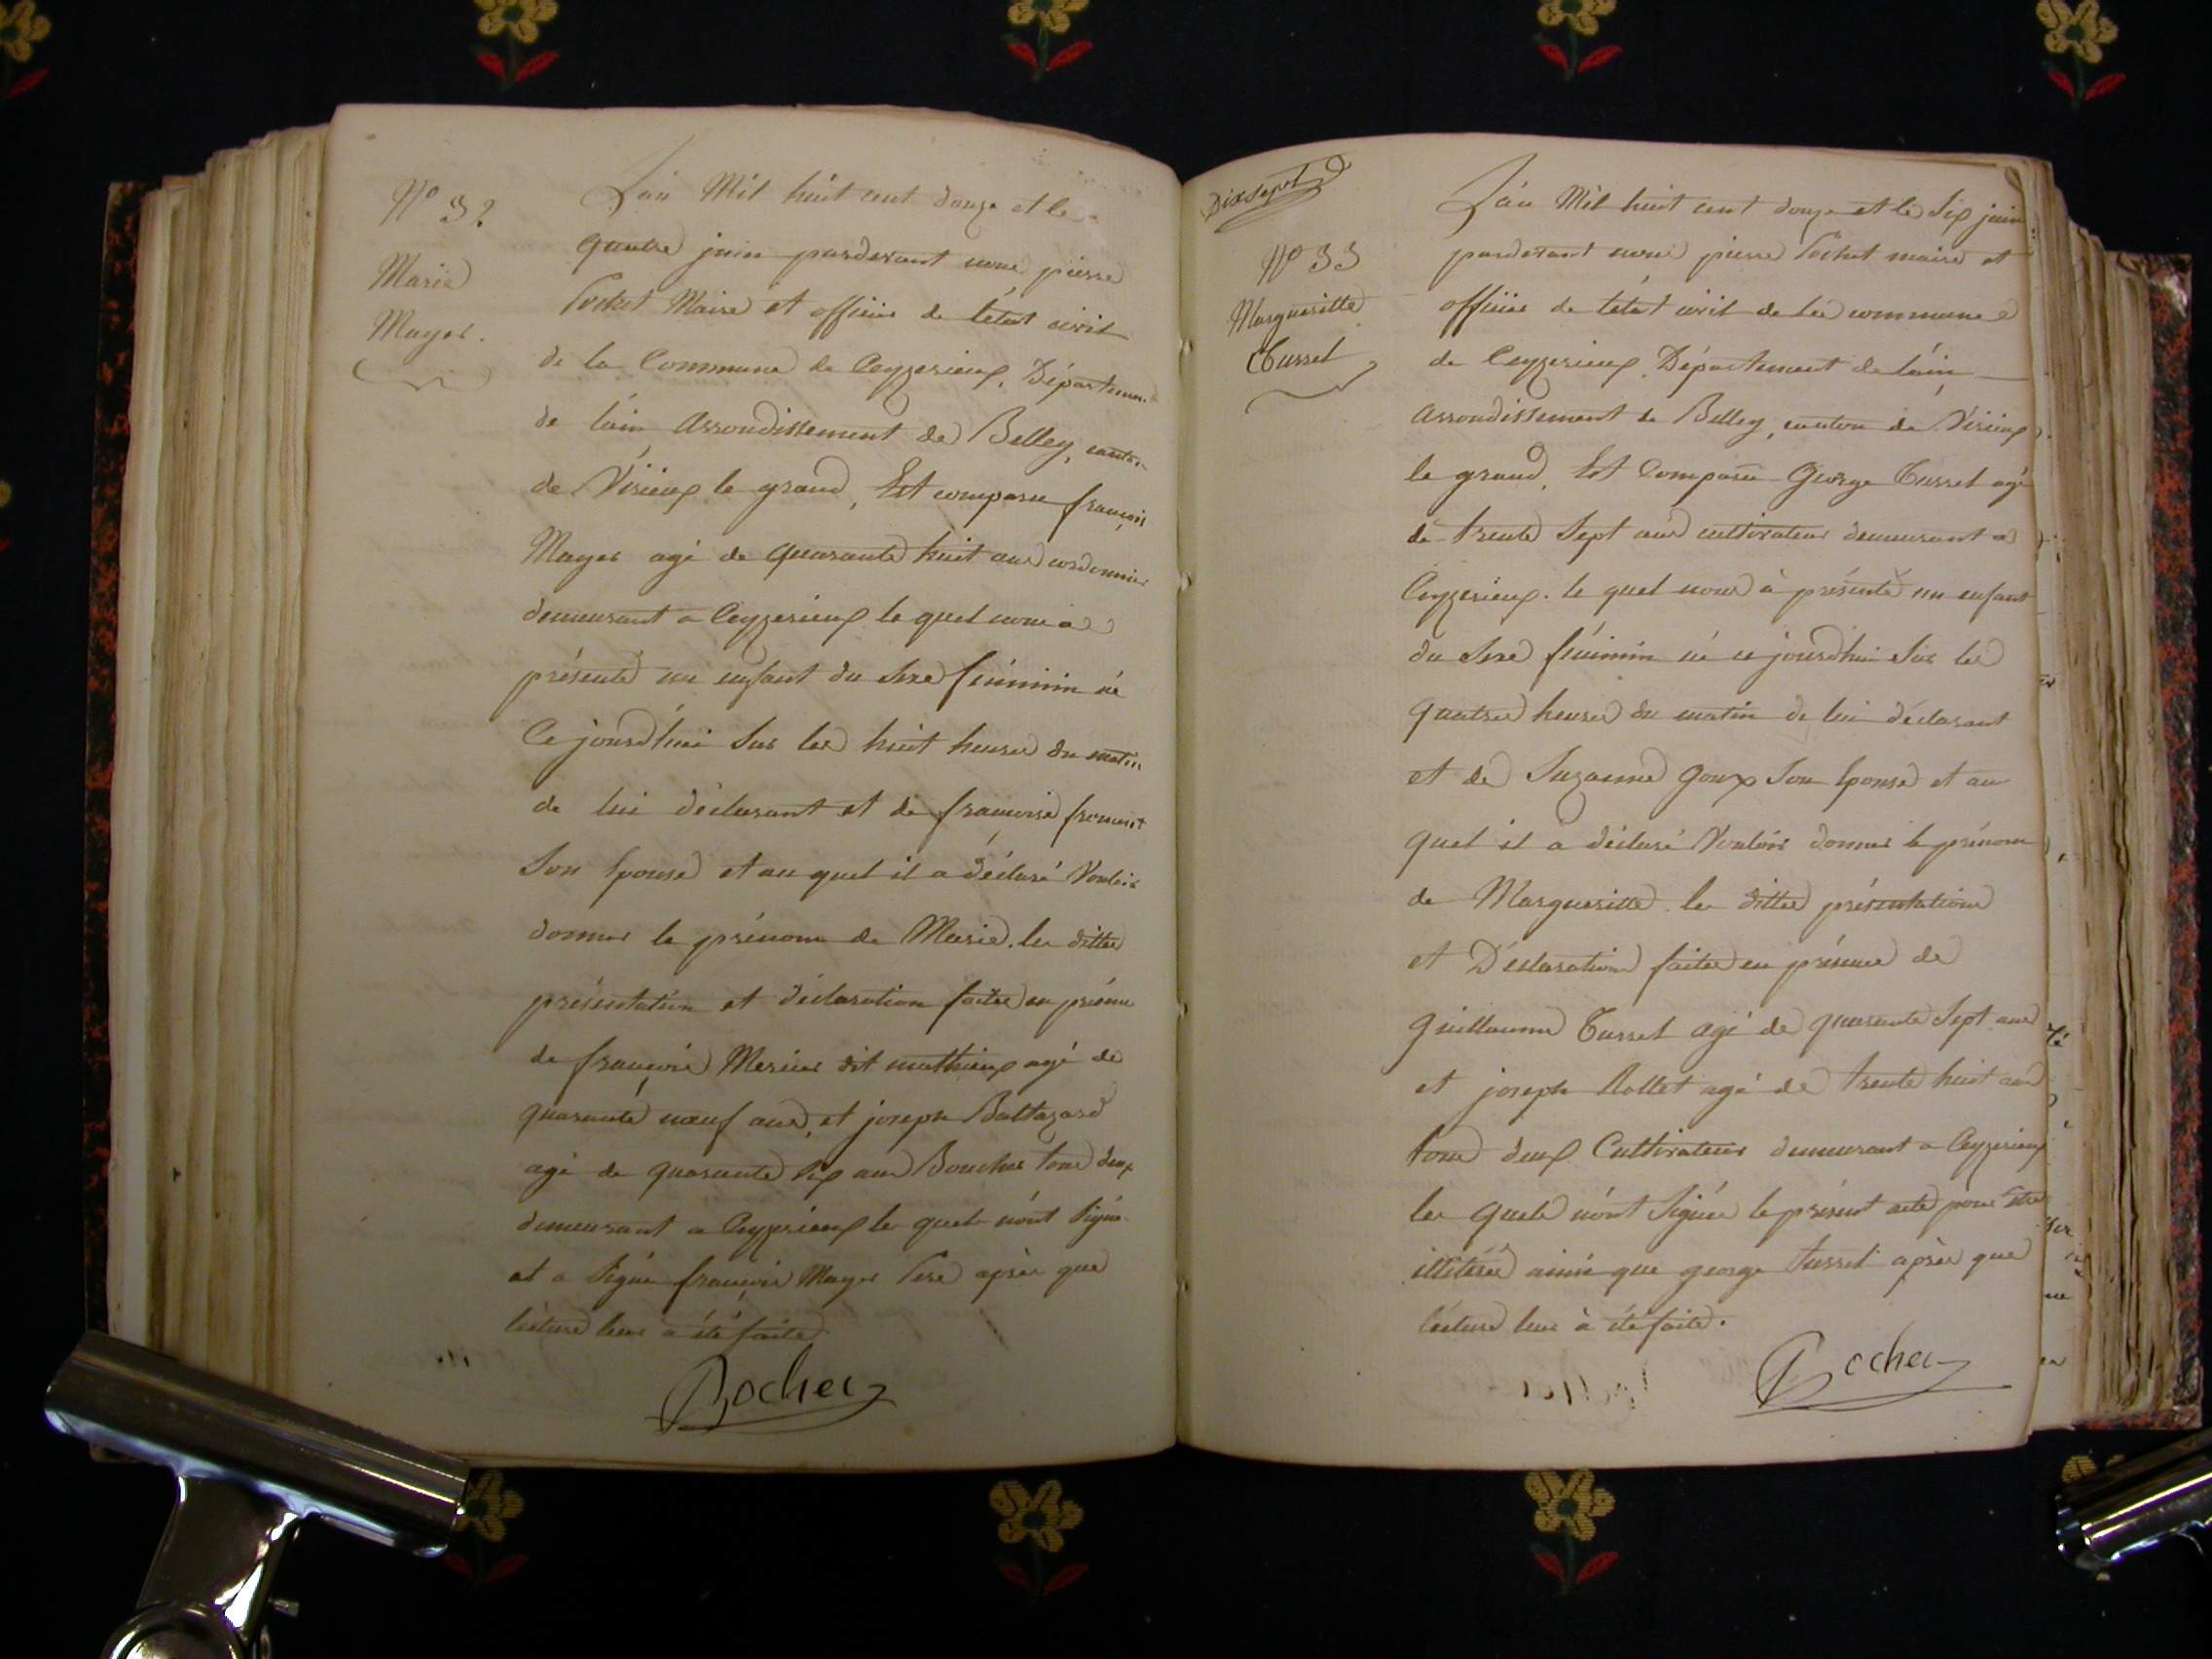 N° 32
Marie
Mayer.
L'an Mil huit cent douze et le
quatre juin pardevant nous pierre
Pochet Maire et officier de l'état civil
de la Commune de Ceyzerieux, Départemen.
de l'ain arrondissement de Belley, canton
de Virieux le grand, Est comparu françois
Mayer agé de quarante huit ans cordonnier
demeurant a Ceyzerieux le quel nous a
présenté un enfant du sexe féminin né
Ce jourd'hui sur les huit heures du matin
de lui déclarant et de francoise froment
Son Epouse et au quel il a déclaré Vouloir
donner le prénom de Marie. les dittes
présentation et déclaration faites en présence
de françois Mercier dit mathieux agé de
quarante neuf ans, et joseph Baltazard
agé de quarante six ans Boucher tous deux
demeurant a Ceyzerieux les quels n'ont signé
et a Signé françois Mayer Pere après que
lecture leur a été faite.
Pochet
Dixsept
N° 33
Margueritte
Tusset
L'an Mil huit cent douze et le Six juin
pardevant nous pierre Pochet maire et
officier de l'état civil de la commune
de Ceyzerieux, Département de l'ain
arrondissement de Belley, canton de Virieux
le grand, Est Comparu George Tusset agé
de trente Sept ans cultivateur demeurant a
Ceyzerieux. le quel nous à présenté un enfant
du Sexe féminin né ce jourd'hui Sur les
quatre heures du matin de lui déclarant
et de Suzanne Goux Son Epouse et au
quel il a déclaré Vouloir donner le prénom
de Margueritte. les dittes présentations
et Déclarations faites en présence de
guillaume Tusset agé de quarante Sept ans
et joseph Rollet agé de trente huit ans
tous deux Cultivateurs demeurant a Ceyzerieux
les quels n'ont Signés le présent acte pour être
illitérés ainsi que george tusset après que
lecture leur à été faite.
Pochet